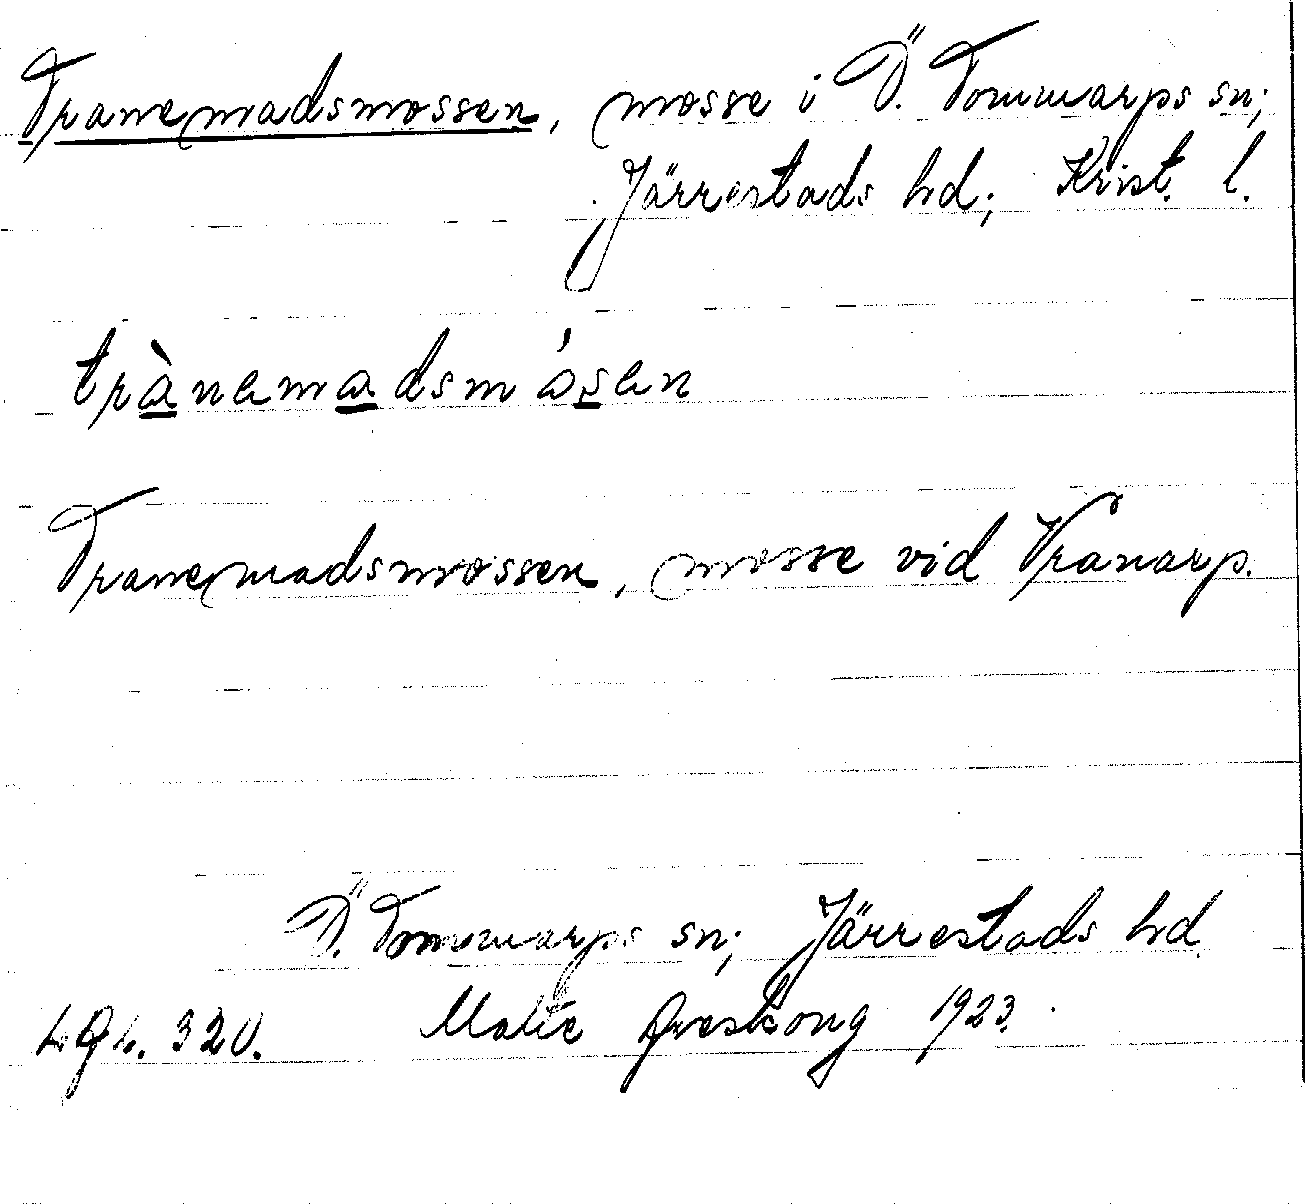 Tranemadsmossen, mosse i Ö. Tommarps sn;
Järrestads hd; Krist. l.
trànemadsmósen
Tranemadsmossen, mosse vid Vranarp.
Ö. Tommarps sn; Järrestads hd.
320. Malte 1923.